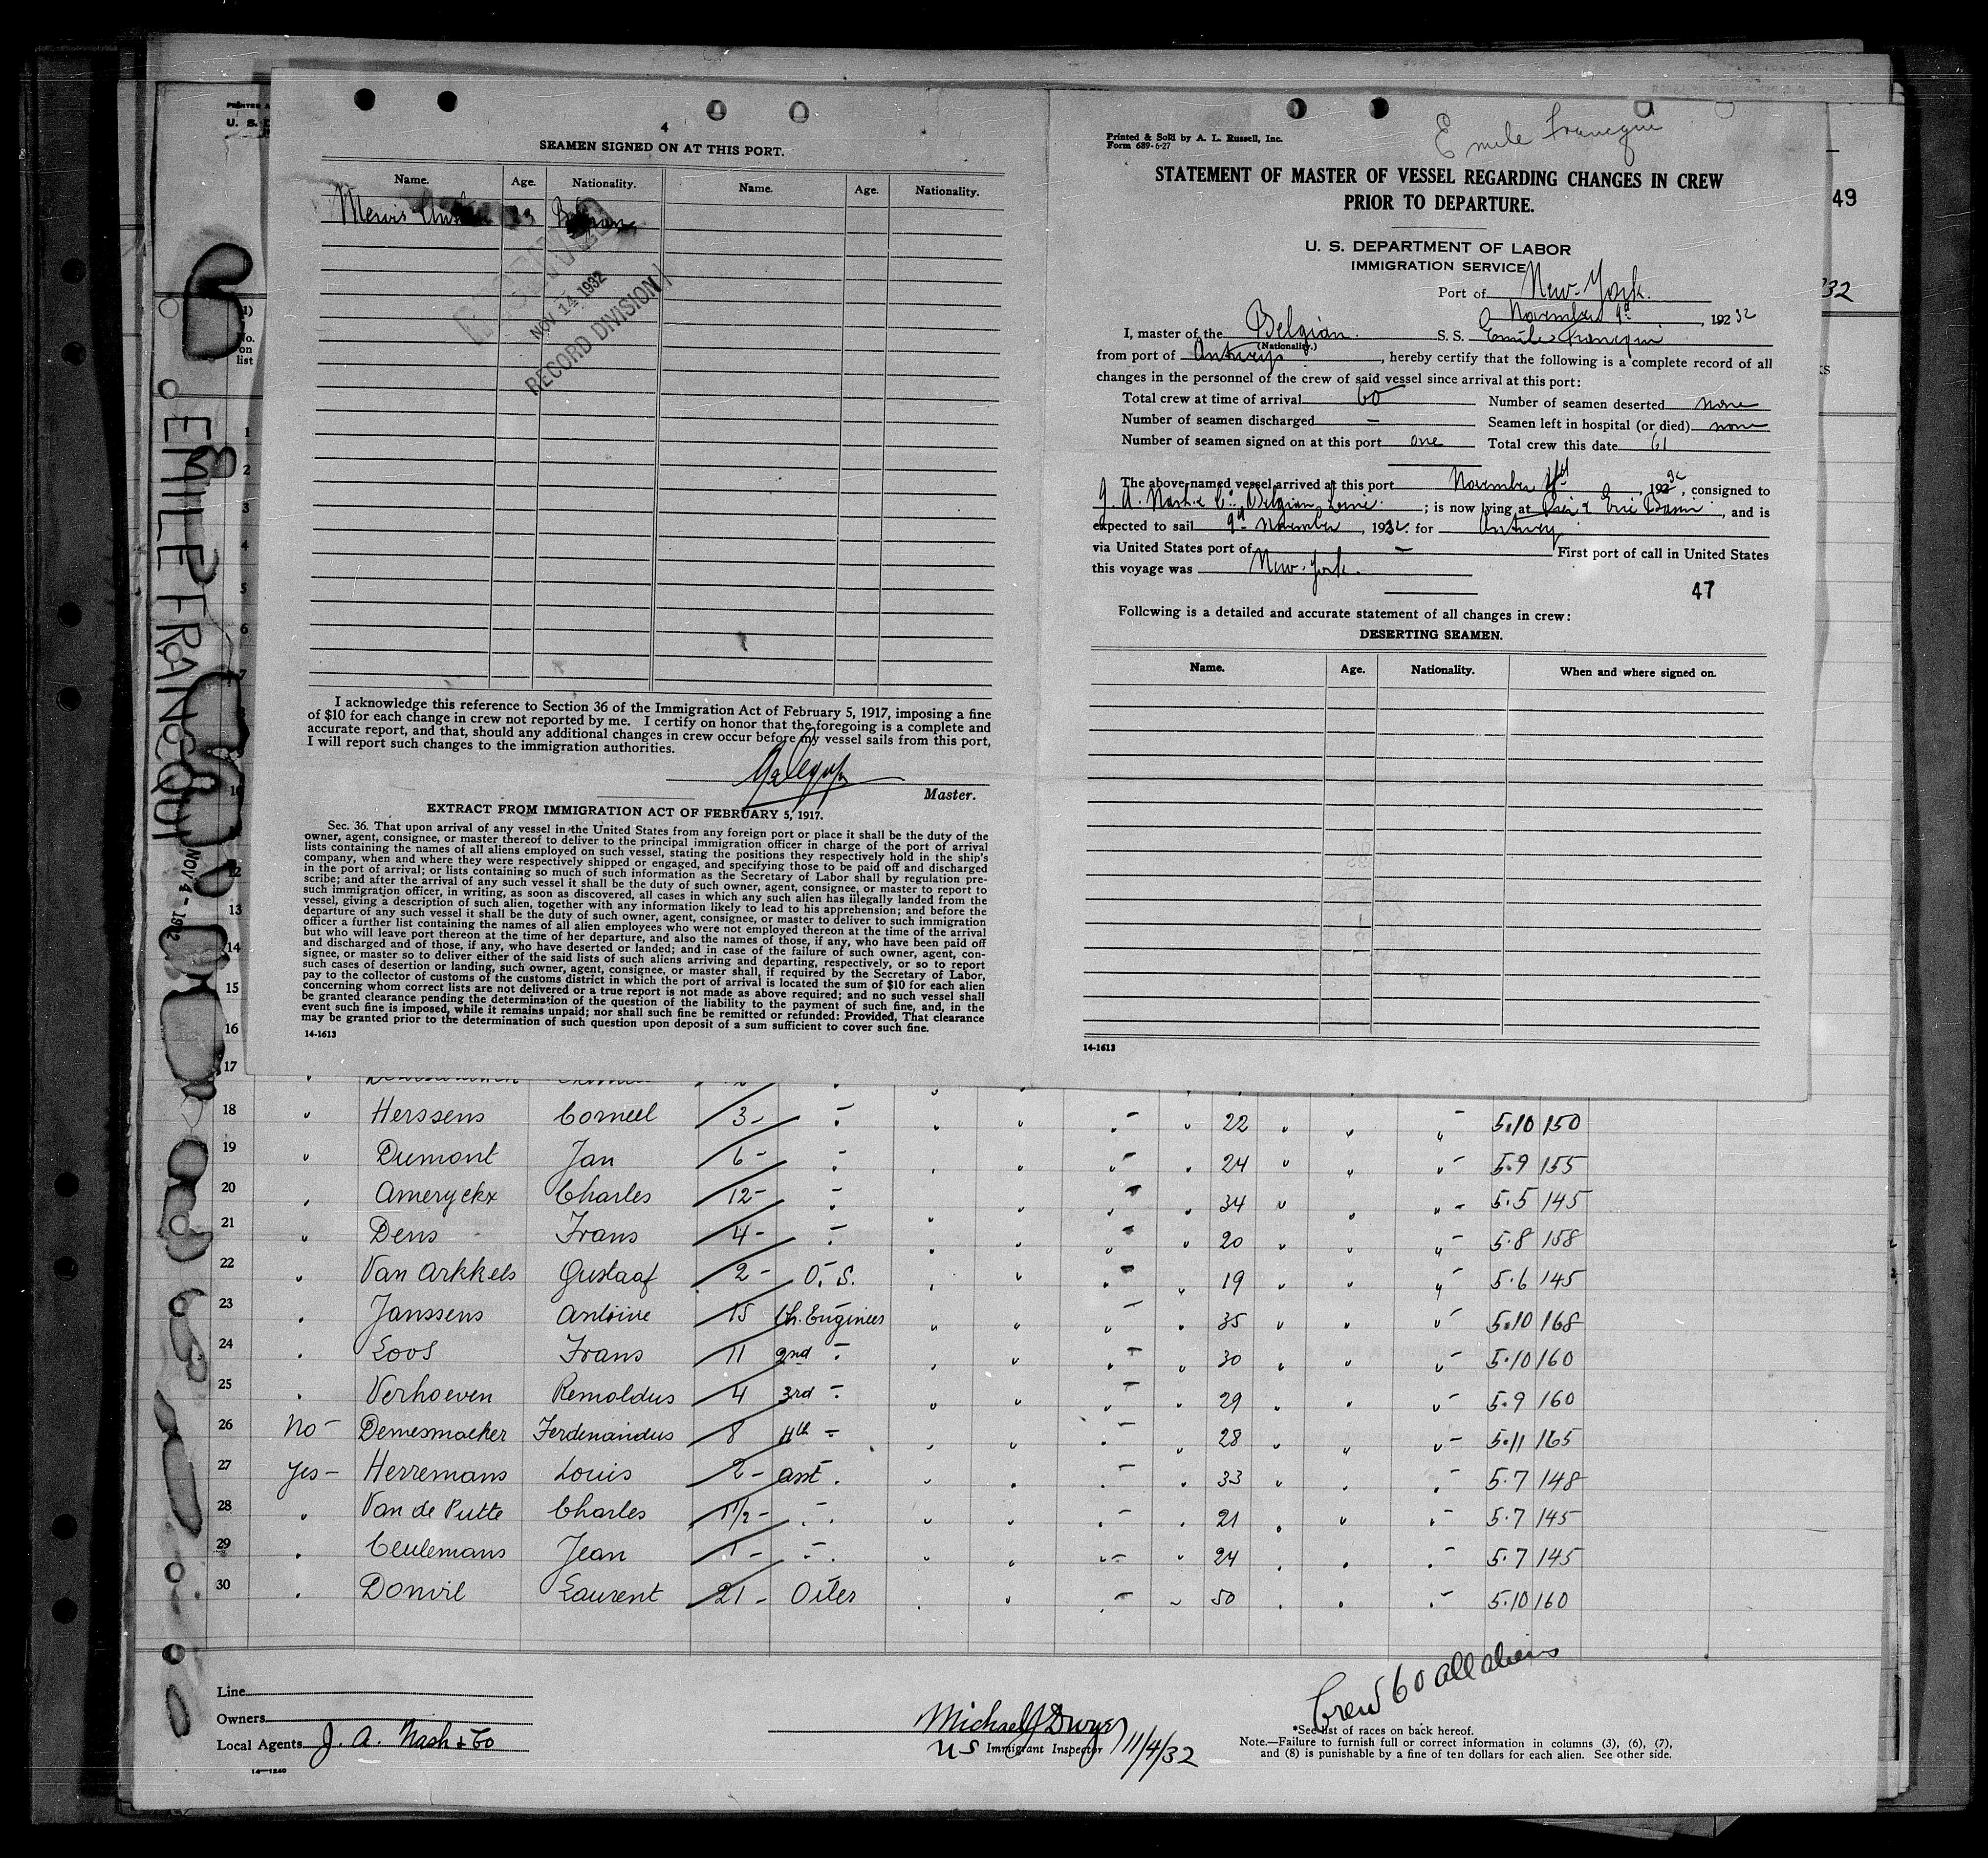 PRINTED
U. S. D
4
SEAMEN SIGNED ON AT THIS PORT.
Name. Age. Nationality. Name. Age. Nationality.
23
NOV 14 1932
RECORD DIVISION
I acknowledge this reference to Section 36 of the Immigration Act of February 5, 1917, imposing a fine
of $10 for each change in crew not reported by me. I certify on honor that the foregoing is a complete and
accurate report, and that, should any additional changes in crew occur before my vessel sails from this port,
I will report such changes to the immigration authorities.
Master.
EXTRACT FROM IMMIGRATION ACT OF FEBRUARY 5, 1917.
Sec. 36. That upon arrival of any vessel in the United States from any foreign port or place it shall be the duty of the
owner, agent, consignee, or master thereof to deliver to the principal immigration officer in charge of the port of arrival
lists containing the names of all aliens employed on such vessel, stating the positions they respectively hold in the ship's
company, when and where they were respectively shipped or engaged, and specifying those to be paid off and discharged
in the port of arrival; or lists containing so much of such information as the Secretary of Labor shall by regulation pre-
scribe; and after the arrival of any such vessel it shall be the duty of such owner, agent, consignee, or master to report to
such immigration officer, in writing, as soon as discovered, all cases in which any such alien has illegally landed from the
vessel, giving a description of such alien, together with any information likely to lead to his apprehension; and before the
departure of any such vessel it shall be the duty of such owner, agent, consignee, or master to deliver to such immigration
officer a further list containing the names of all alien employees who were not employed thereon at the time of the arrival
but who will leave port thereon at the time of her departure, and also the names of those, if any, who have been paid off
and discharged and of those, if any, who have deserted or landed; and in case of the failure of such owner, agent, con-
signee, or master so to deliver either of the said lists of such aliens arriving and departing, respectively, or so to report
such cases of desertion or landing, such owner, agent, consignee, or master shall, if required by the Secretary of Labor,
pay to the collector of customs of the customs district in which the port of arrival is located the sum of $10 for each alien
concerning whom correct lists are not delivered or a true report is not made as above required; and no such vessel shall
be granted clearance pending the determination of the question of the liability to the payment of such fine, and, in the
event such fine is imposed, while it remains unpaid; nor shall such fine be remitted or refunded: Provided, That clearance
may be granted prior to the determination of such question upon deposit of a sum sufficient to cover such fine.
14-1613
Printed & Sold by A. L. Russell, Inc.
Form 689-6-27
Emile Francqui
STATEMENT OF MASTER OF VESSEL REGARDING CHANGES IN CREW
PRIOR TO DEPARTURE.
U. S. DEPARTMENT OF LABOR
IMMIGRATION SERVICE
Port of New-York.
November 9th, 1932
I, master of the Belgian S. S. Emile Francqui
(Nationality.)
from port of Antwerp, hereby certify that the following is a complete record of all
changes in the personnel of the crew of said vessel since arrival at this port:
Total crew at time of arrival 60 Number of seamen deserted none
Number of seamen discharged - Seamen left in hospital (or died) none
Number of seamen signed on at this port one Total crew this date 61
The above-named vessel arrived at this port November, 1932, consigned to
J. A. Nash & Co. Belgian Line; is now lying at Pier 2 Erie Basin, and is
expected to sail 9th November, 1932 for Antwerp
via United States port of - First port of call in United States
this voyage was New-York.
47
Following is a detailed and accurate statement of all changes in crew:
DESERTING SEAMEN.
Name. Age. Nationality. When and where signed on.
14-1613
49
32
No.
on
list
EMILE FRANCQUI
NOV 4 - 1932
1
2
3
4
5
6
7
10
12
13
14
15
16
17
18 " Herssens Corneel 3- " 22 5.10 150
19 " Dumont Jan 6- " 24 5.9 155
20 " Ameryckx Charles 12- " 34 5.5 145
21 " Dens Frans 4- " 20 5.8 158
22 " Van Arkkels Gustaaf 2- O. S. 19 5.6 145
23 " Janssens Antoine 15 Ch. Engineer 35 5.10 168
24 " Loos Frans 11 2nd " 30 5.10 160
25 " Verhoeven Remoldus 4 3rd " 29 5.9 160
26 No- Demesmaeker Ferdinandus 8 4th " 28 5.11 165
27 Yes- Herremans Louis 2- asst. 33 5.7 148
28 " Van de Putte Charles 1½- " 21 5.7 145
29 " Ceulemans Jean 1- " 24 5.7 145
30 " Donvil Laurent 21- Oiler 50 5.10 160
Crew 60 all aliens
Line
Owners
Local Agents J. A. Nash & Co
14-1240
Michael J Dwyer
US Immigrant Inspector 11/4/32
*See list of races on back hereof.
Note.—Failure to furnish full or correct information in columns (3), (6), (7),
and (8) is punishable by a fine of ten dollars for each alien. See other side.